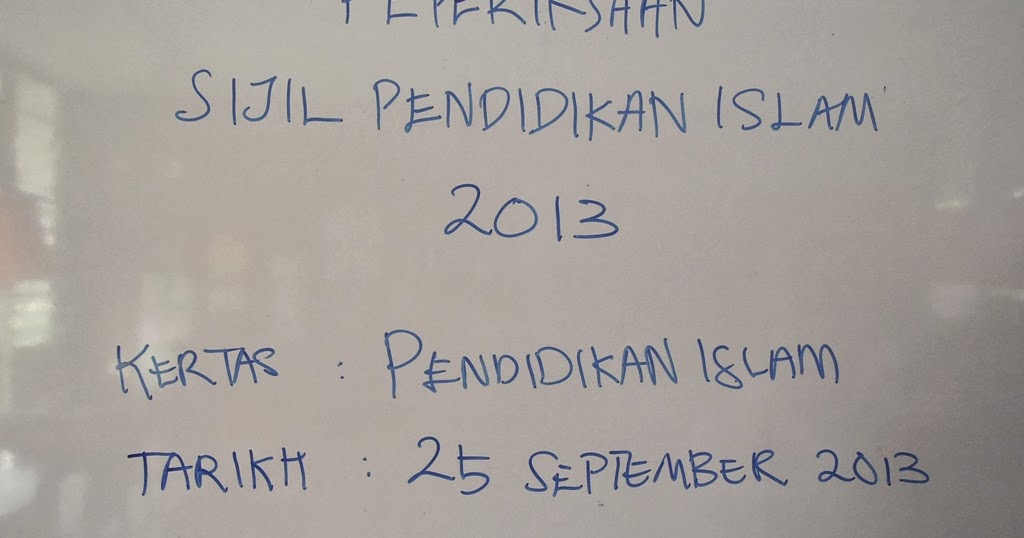 PEPERIKSAAN
SIJIL PENDIDIKAN ISLAM
2013
KERTAS : PENDIDIKAN ISLAM
TARIKH : 25 SEPTEMBER 2013